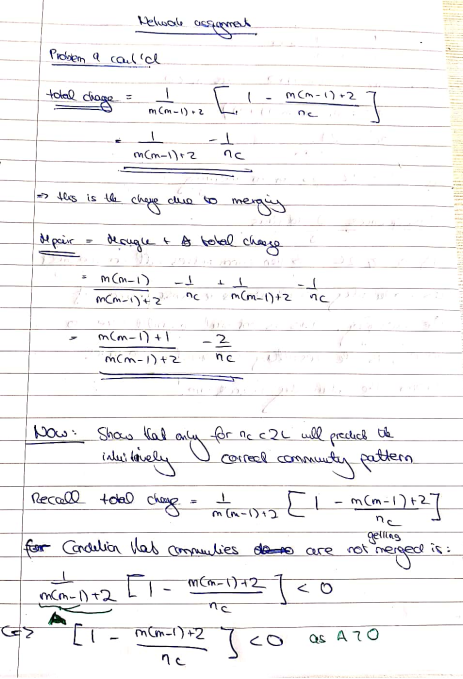 Network assignment
Problem a cont'd
total change = 1/(m(m-1)+2) [ 1 - (m(m-1)+2)/nc ]
= 1/(m(m-1)+2) - 1/nc
=> this is the change due to merging
Mpair = Msingle + total change
= m(m-1)/(m(m-1)+2) - 1/nc + 1/(m(m-1)+2) - 1/nc
= (m(m-1)+1)/(m(m-1)+2) - 2/nc
Now: Show that only for nc < 2L will predict the
intuitively correct community pattern
Recall total change = 1/(m(m-1)+2) [ 1 - (m(m-1)+2)/nc ]
Condition that communities are not getting merged is:
1/(m(m-1)+2) [ 1 - (m(m-1)+2)/nc ] < 0
A
<=> [ 1 - (m(m-1)+2)/nc ] < 0 as A > 0